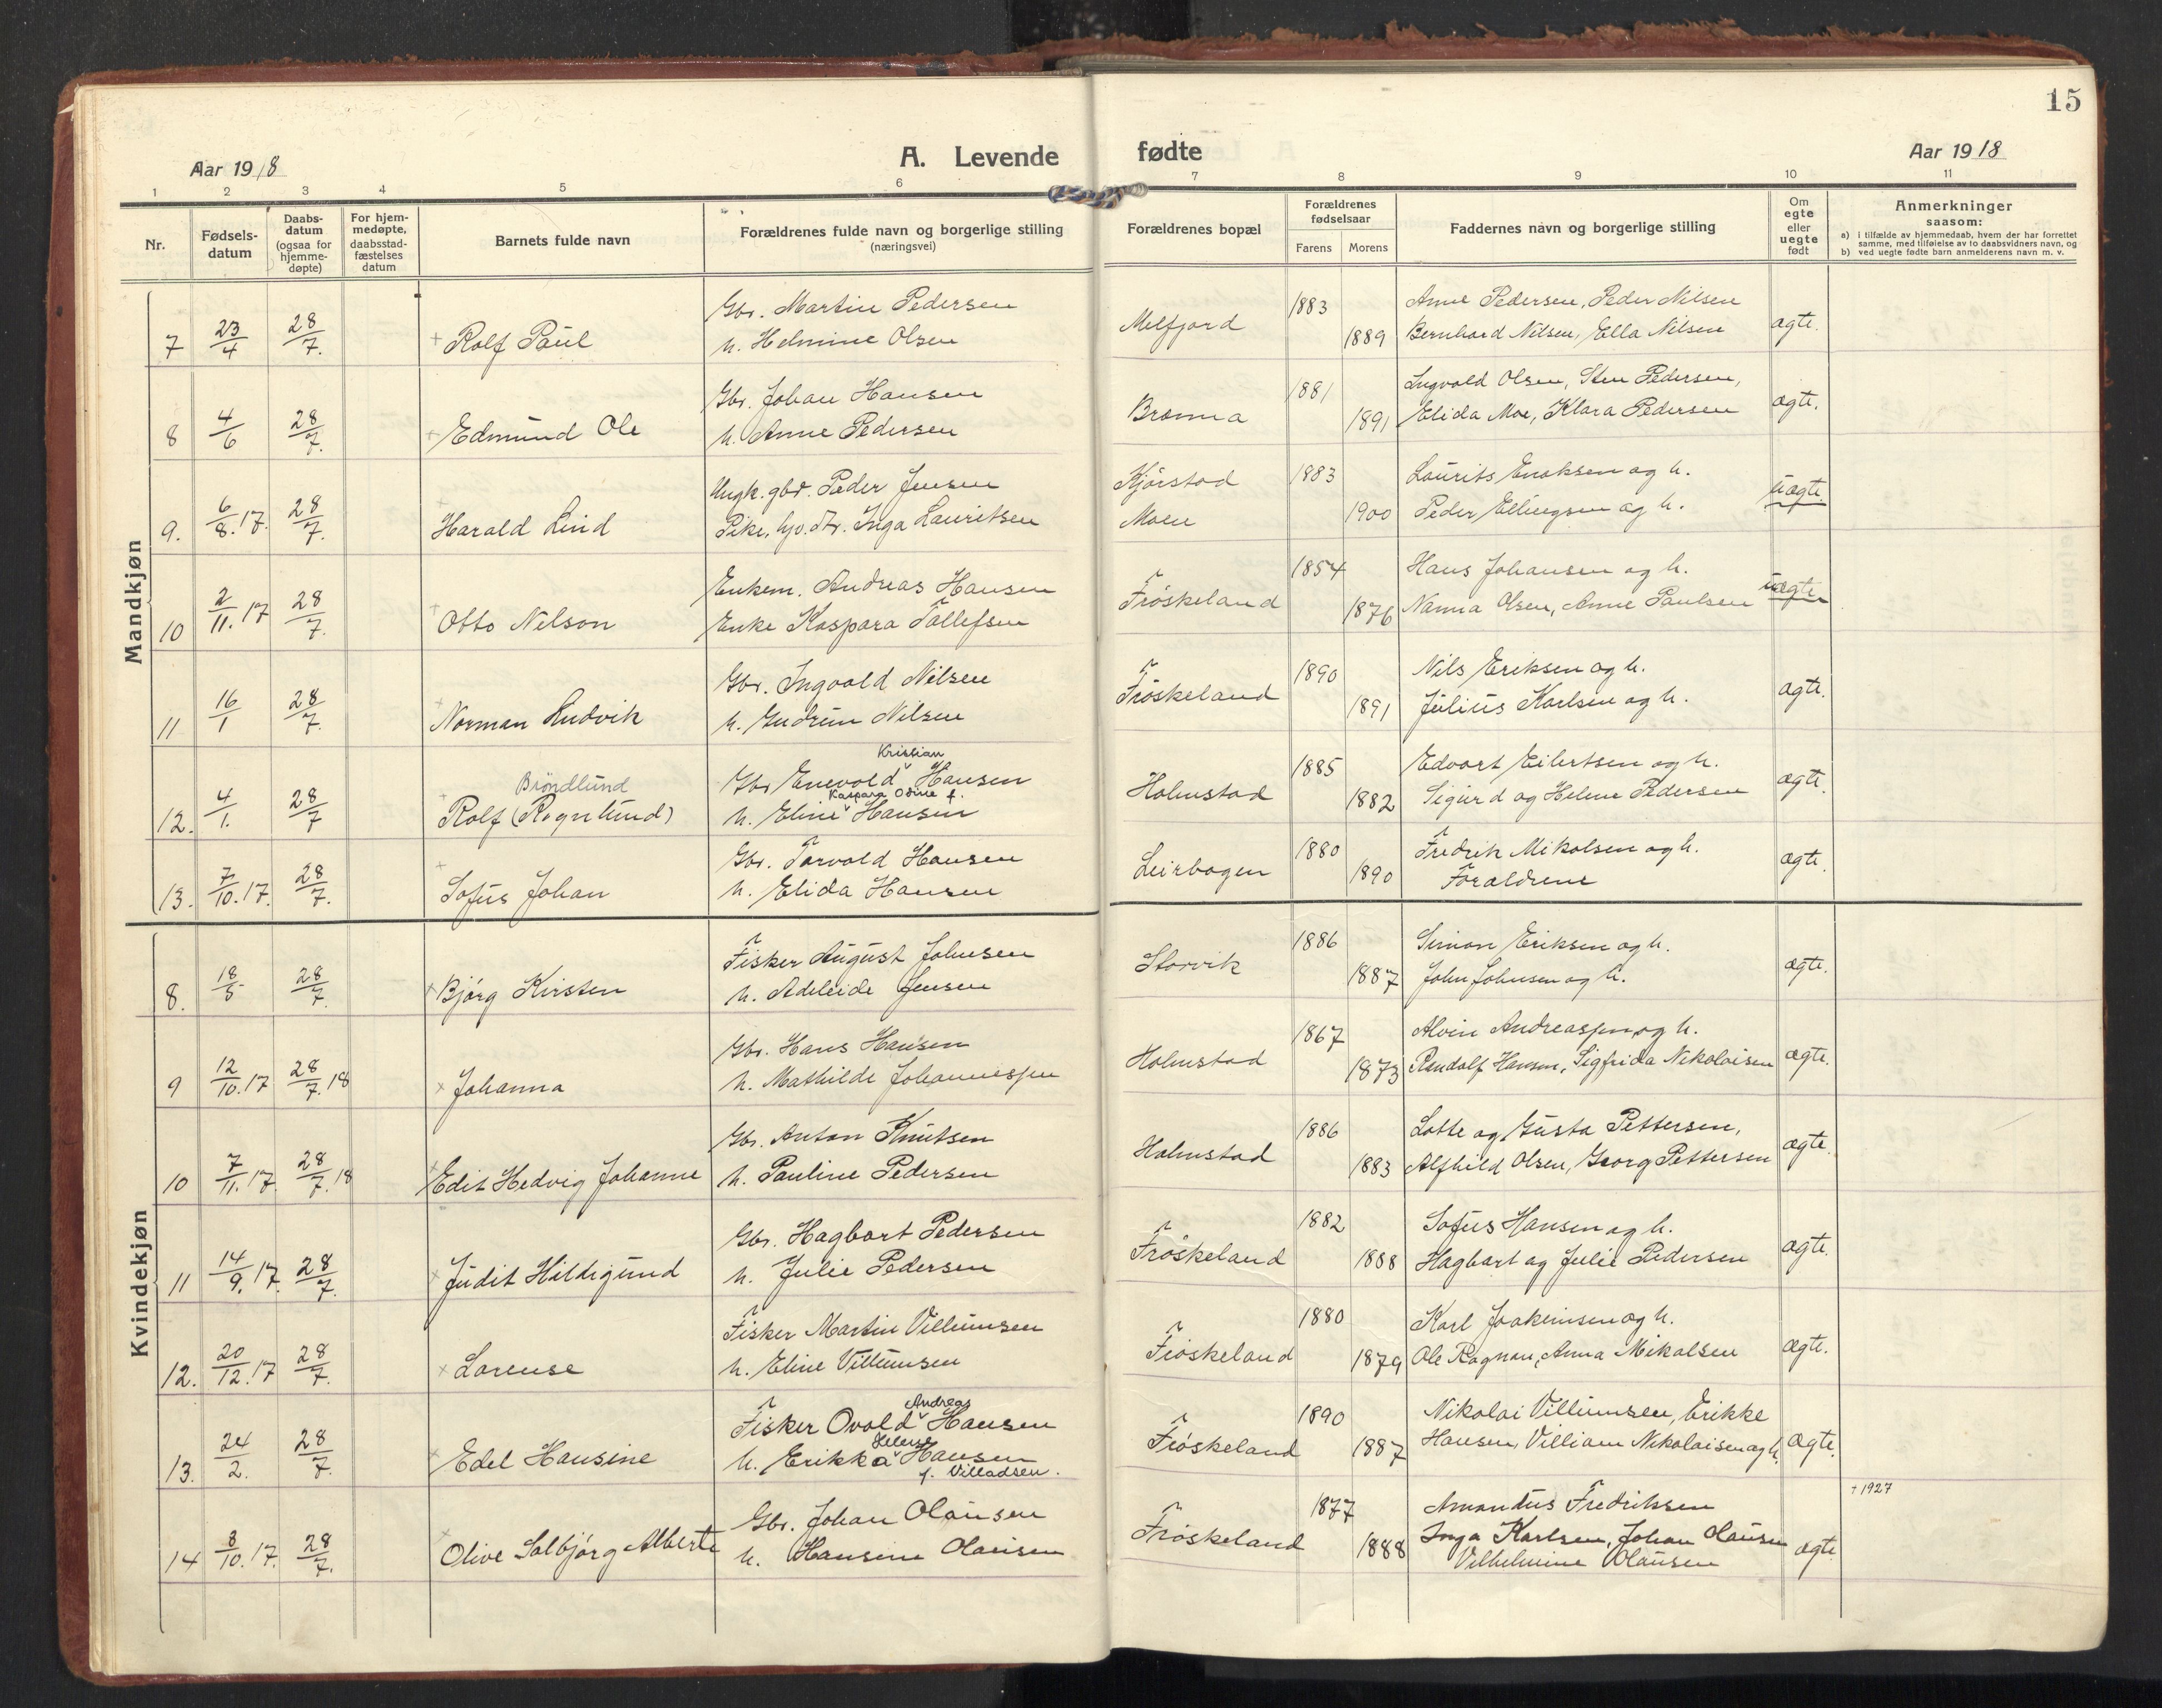 15
Aar 1918
A. Levende
fødte
Aar 1918
1 2 3 4 5 6 7 8 9 10 11
Nr.
Fødsels-
datum
Daabs-
datum
(ogsaa for
hjemme-
døpte)
For hjem-
medøpte,
daabsstad-
fæstelses
datum
Barnets fulde navn
Forældrenes fulde navn og borgerlige stilling
(næringsvei)
Forældrenes bopæl
Forældrenes
fødselsaar
Farens Morens
Faddernes navn og borgerlige stilling
Om
egte
eller
uegte
født
Anmerkninger
saasom:
a) i tilfælde av hjemmedaab, hvem der har forrettet
samme, med tilføielse av to daabsvidners navn, og
b) ved uegte fødte barn anmelderens navn m. v.
Mandkjøn
Gbr. Martin Pedersen 1883 Anne Pedersen, Peder Nilsen
7 23/4 28/7. Rolf Paul h. Helmine Olsen Melfjord 1889 Bernhard Nilsen, Ella Nilsen ægte.
Gbr. Johan Hansen 1881 Ingvald Olsen, Sten Pedersen,
8 4/6 28/7. Edmund Ole h. Anne Pedersen Brænna 1891 Elida Moe, Klara Pedersen ægte.
Ungk. gbr. Peder Jensen Kjørstad 1883 Laurits Enoksen og h.
9. 6/8.17. 28/7. Harald Lind Pike, hjv. dtr. Inga Lauritsen Moen 1900 Peder Ellingsen og h. uægte
Enkem. Andreas Hansen 1854 Hans Johansen og h.
10 2/11.17 28/7. Otto Nelson Enke Kaspara Tollefsen Frøskeland 1876 Nanna Olsen, Anne Paulsen uægte
Gbr. Ingvald Nilsen 1890 Nils Eriksen og h.
11 16/1 28/7. Norman Ludvik h. Gudrun Nilsen Frøskeland 1891 Julius Karlsen og h. ægte.
Kristian
Brøndlund Gbr Enevold Hansen 1885 Edvart Eilertsen og h.
Kaspara Odine f.
12. 4/1. 28/7 Rolf (Rognlund) h. Eline Hansen Holmstad 1882 Sigurd og Helene Pedersen ægte.
Gbr. Torvald Hansen 1880 Fredrik Mikalsen og h.
13. 7/10.17. 28/7. Sofus Johan h. Elida Hansen Leirbogen 1890 Forældrene ægte.
Kvindekjøn
Fisker August Johnsen 1886 Simon Eriksen og h.
8. 18/5 28/7 Bjørg Kirsten h. Adeleide Jensen Storvik 1887 John Johnsen og h. ægte.
Gbr. Hans Hansen 1867 Alvin Andreassen og h.
9 12/10.17 28/7.18 Johanna h. Mathilde Johannessen Holmstad 1873 Randolf Hansen, Sigfrida Nikolaisen ægte.
Gbr. Anton Knutsen 1886 Lotte og Gusta Pettersen,
10 7/11.17. 28/7.18 Edit Hedvig Johanne h. Pauline Pedersen Holmstad 1883 Alfhild Olsen, Georg Pettersen ægte.
Gbr. Hagbart Pedersen 1882 Sofus Hansen og h.
11 14/9.17. 28/7. Judit Hildigund h. Julie Pedersen Frøskeland 1888 Hagbart og Julie Pedersen ægte.
Fisker Martin Villumsen 1880 Karl Joakimsen og h.
12. 20/12.17 28/7. Lorense h. Eline Villumsen Frøskeland 1879 Ole Rognan, Anna Mikalsen ægte.
Andreas
Fisker Ovold Hansen 1890 Nikolai Villumsen, Erikke
Helene
13. 24/2. 28/7. Edel Hansine h. Erikka Hansen Frøskeland 1887 Hansen, Villiam Nikolaisen og h. ægte.
f. Villadsen.
† 1927
Gbr. Johan Olausen 1877 Amandus Fredriksen
14 8/10.17. 28/7. Olive Solbjørg Alberte h. Hansine Olausen Frøskeland 1888 Inga Karlsen, Johan Olausen ægte
Vilhelmine Olausen